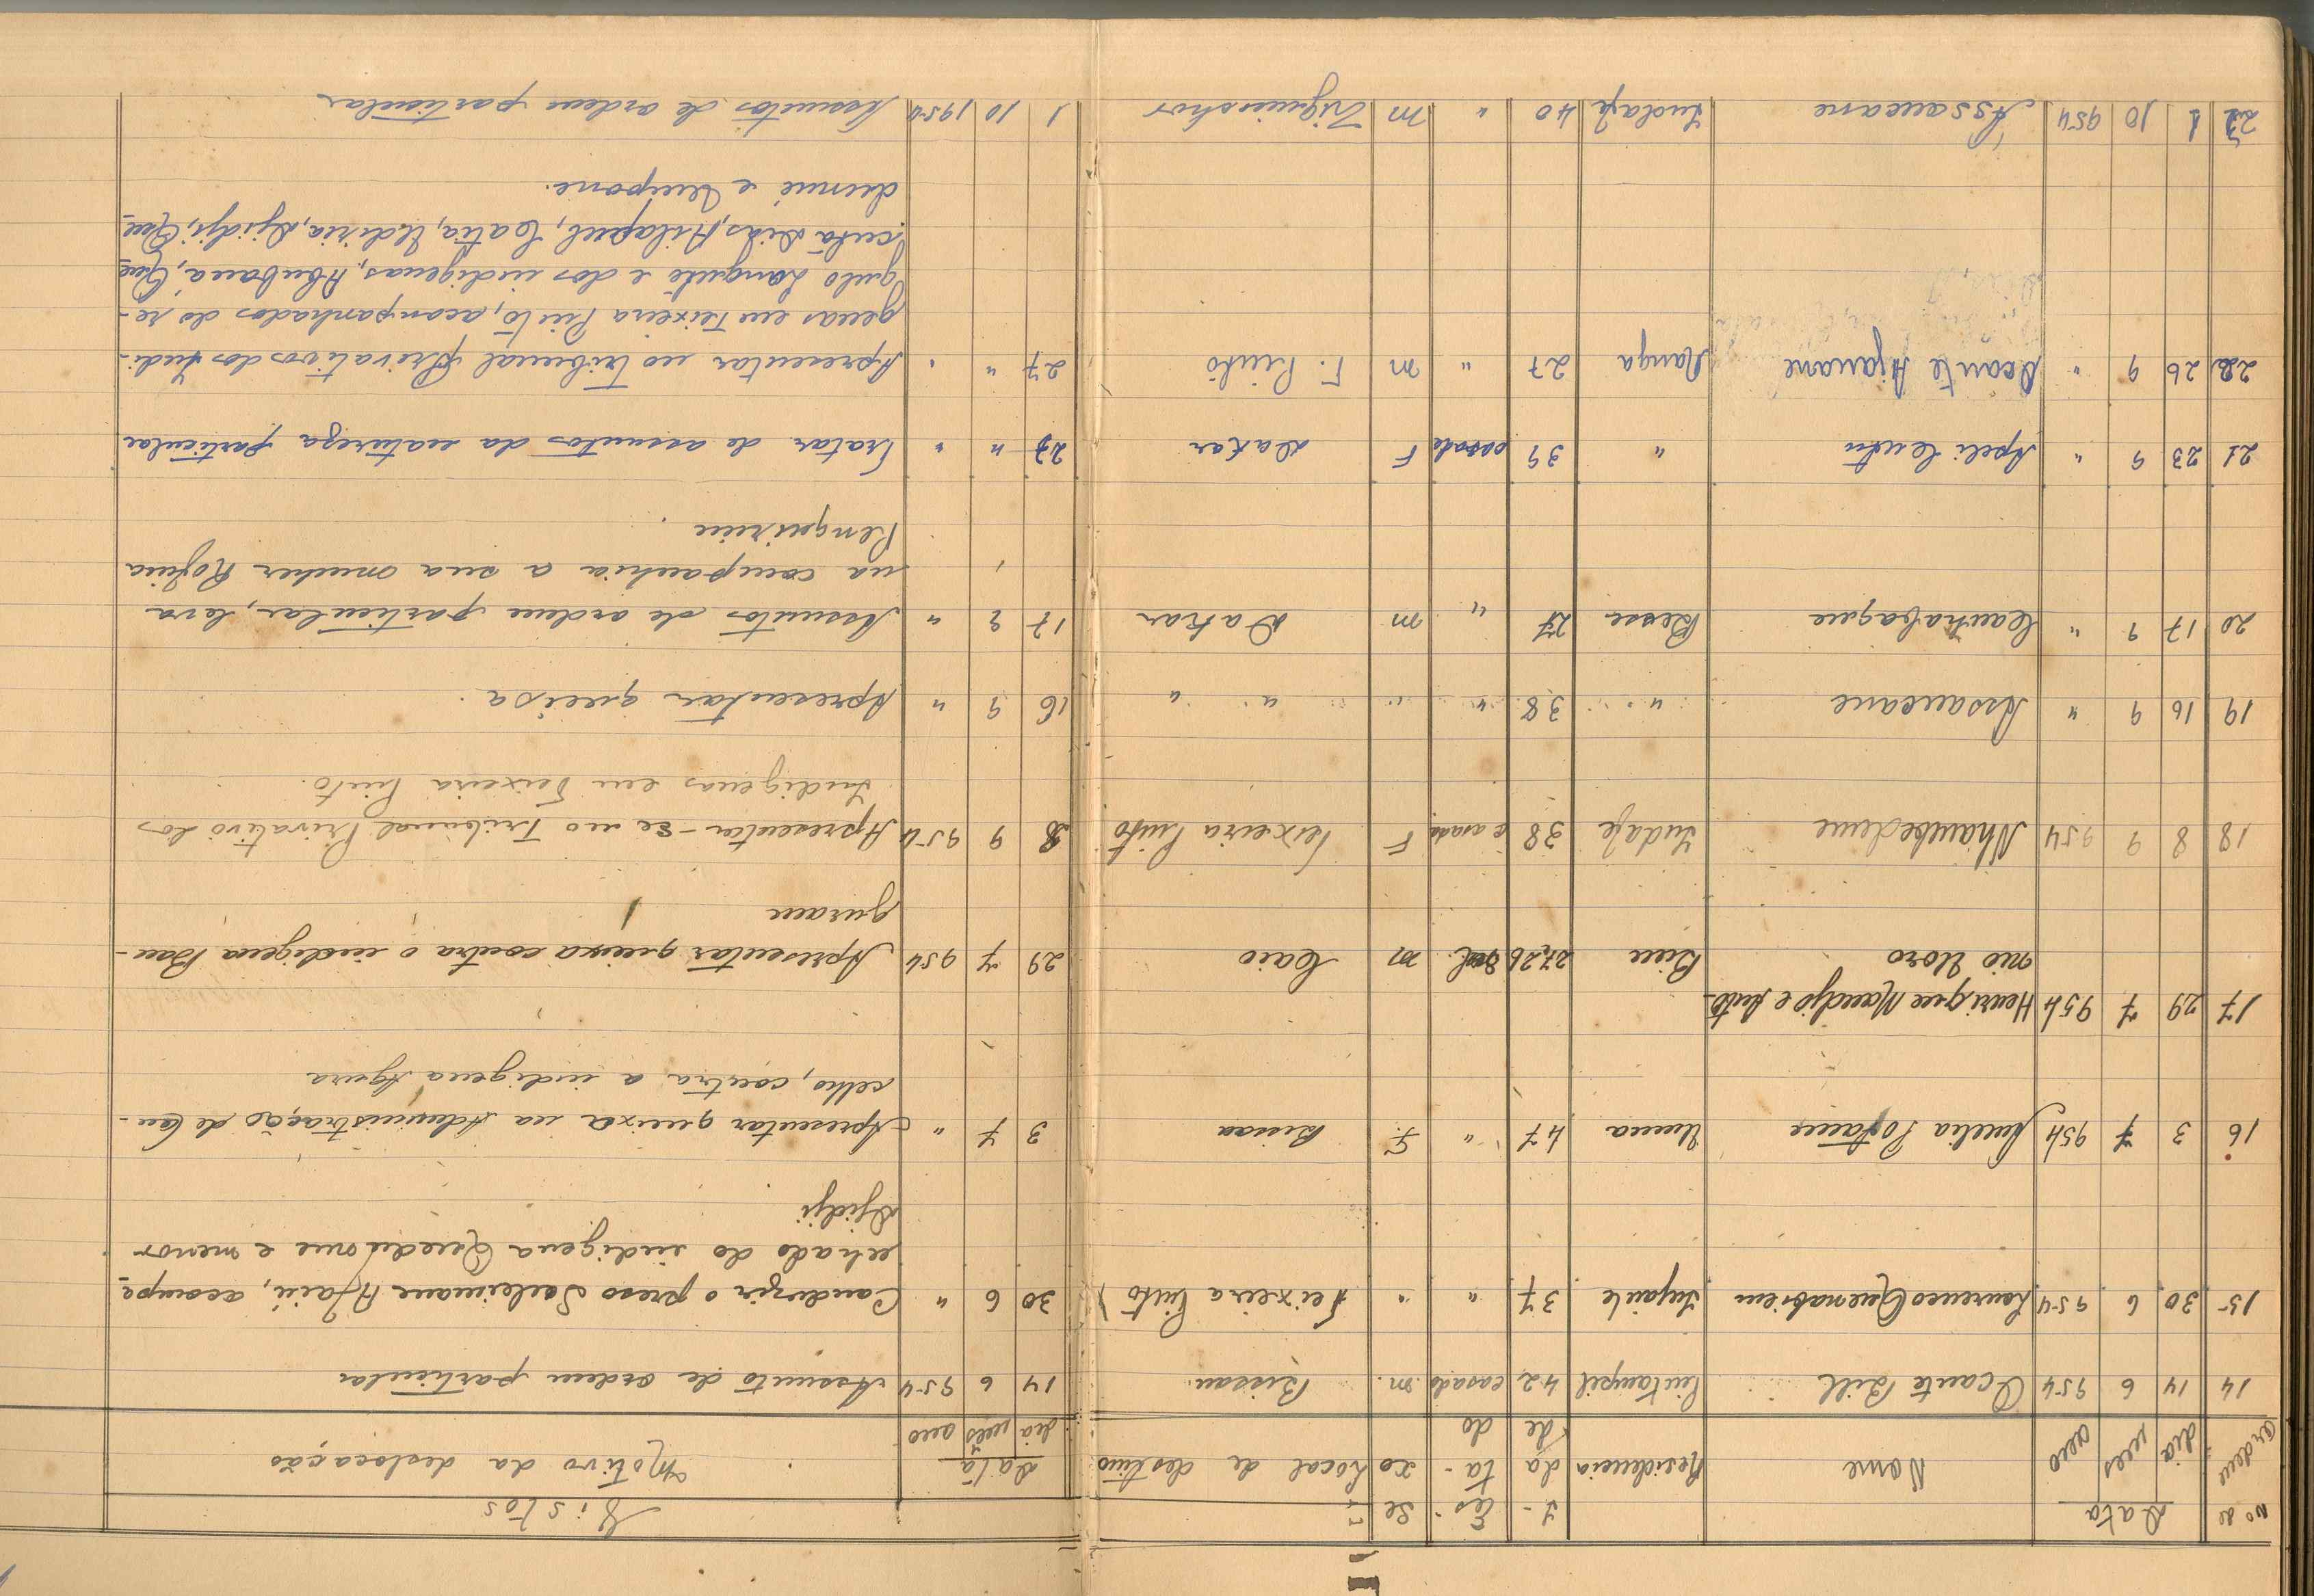 Nº de ordem | Data dia mês ano | Nome | Residencia | I-da-de | Es-ta-do | Se-xo | Local de destino | Vistos Data dia mês ano | Motivo da deslocação
14 | 14 | 6 | 954 | Ocante Bill | Pintampil | 42 | casado | m. | Bissau | 14 | 6 | 954 | Assunto de ordem particular
15 | 30 | 6 | 954 | Lourenco Quenassem | Infaite | 37 | " | " | Teixeira Pinto) | 30 | 6 | " | Conduzir o preso Suleimane Djaiú, acompa-
nhado do indigena Quedeione e menor
Djidji
16 | 3 | 7 | 954 | Amelia | Uama | 47 | " | F. | Bissau | 3 | 7 | " | Apresentar queixa na Administração de Can-
celho, contra a indigena Agura
17 | 29 | 7 | 954 | Henrique Mendjo e Anto-
nio Uoro | Biem | 27,26 | sol. | m | Caio | 29 | 7 | 954 | Apresentar queixa contra o indigena Bam-
guram
18 | 8 | 9 | 954 | Nhambedeme | Indafe | 38 | casado | F | Teixeira Pinto | 8 | 9 | 954 | Apresentar-se no Tribunal Privativo dos
Indigenas em Teixeira Pinto.
19 | 16 | 9 | " | Assaucane | " | 38 | " | " | " " | 16 | 9 | " | Apresentar queixa.
20 | 17 | 9 | " | Cautrabague | Besse | 27 | " | m | Dakar | 17 | 9 | " | Assuntos de ordem particular, leva
na companhia a sua mulher Rofina
Penquiréie.
21 | 23 | 9 | " | Apeli Cudu | " | 39 | casado | F | Dakar | 27 | " | " | Tratar de assuntos da natureza particular
22 | 26 | 9 | " | Ocante Bjanane | Nanga | 27 | " | m | T. Pinto | 27 | " | " | Apresentar no Tribunal Privativos dos Indi-
genas em Teixeira Pinto, acompanhados do re-
gulo Languté e dos indigenas, Abubacá, Que-
cuta Dias, Hilapiel, Catia, Uduria, Djidji, Que-
dunié e Umpone.
23 | 1 | 10 | 954 | Assaucane | Indafe | 40 | " | m | Ziguinchor | 1 | 10 | 1954 | Assuntos de ordem particular